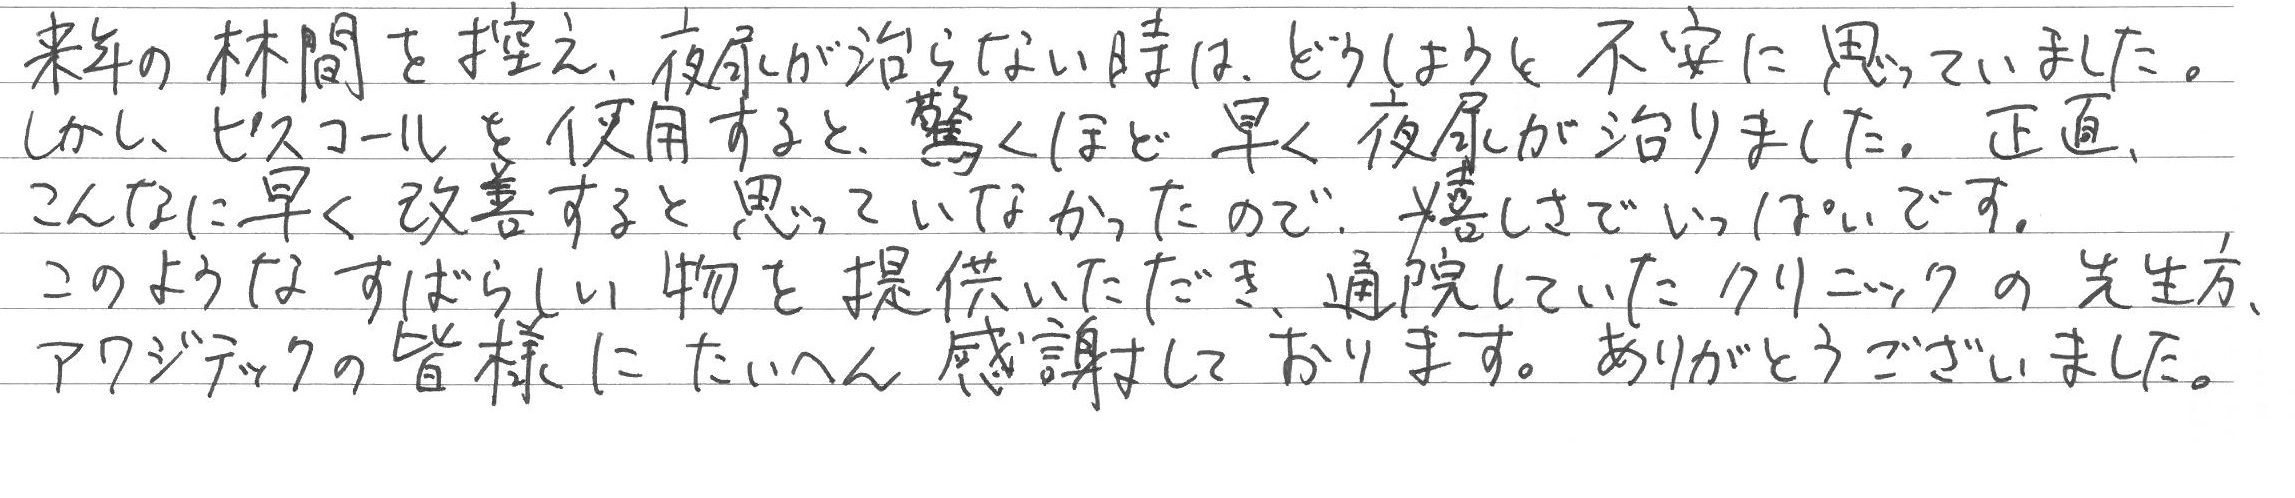 来年の林間を控え、夜尿が治らない時は、どうしようと不安に思っていました。
しかし、ピスコールを使用すると、驚くほど早く夜尿が治りました。正直、
こんなに早く改善すると思っていなかったので、嬉しさでいっぱいです。
このようなすばらしい物を提供いただき、通院していたクリニックの先生方、
アワジテックの皆様にたいへん感謝しております。ありがとうございました。